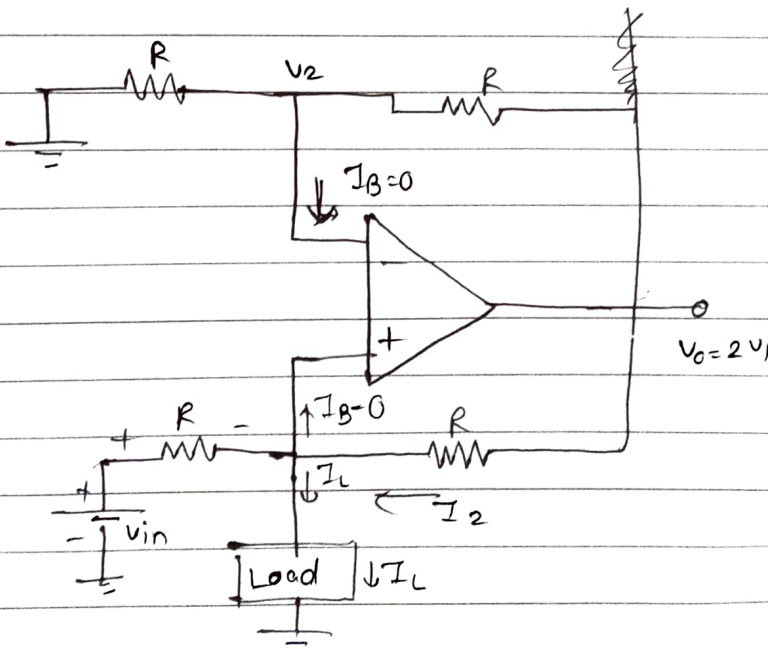 R
V2
R
IB=0
-
+
Vo=2V
IB=0
R
R
+
-
IL
I2
+
-
Vin
Load
IL